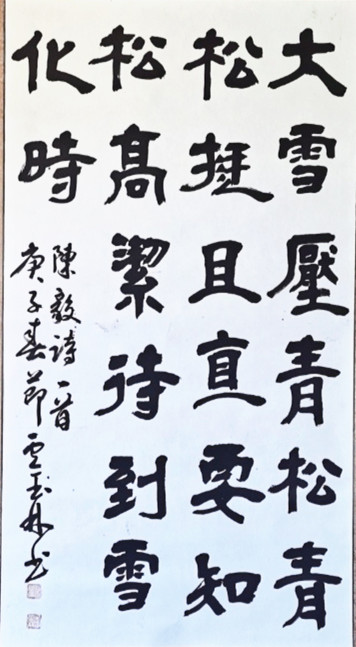 大雪壓青松青
松挺且直要知
松高潔待到雪
化時
陳毅詩一首
庚子春節玉林书